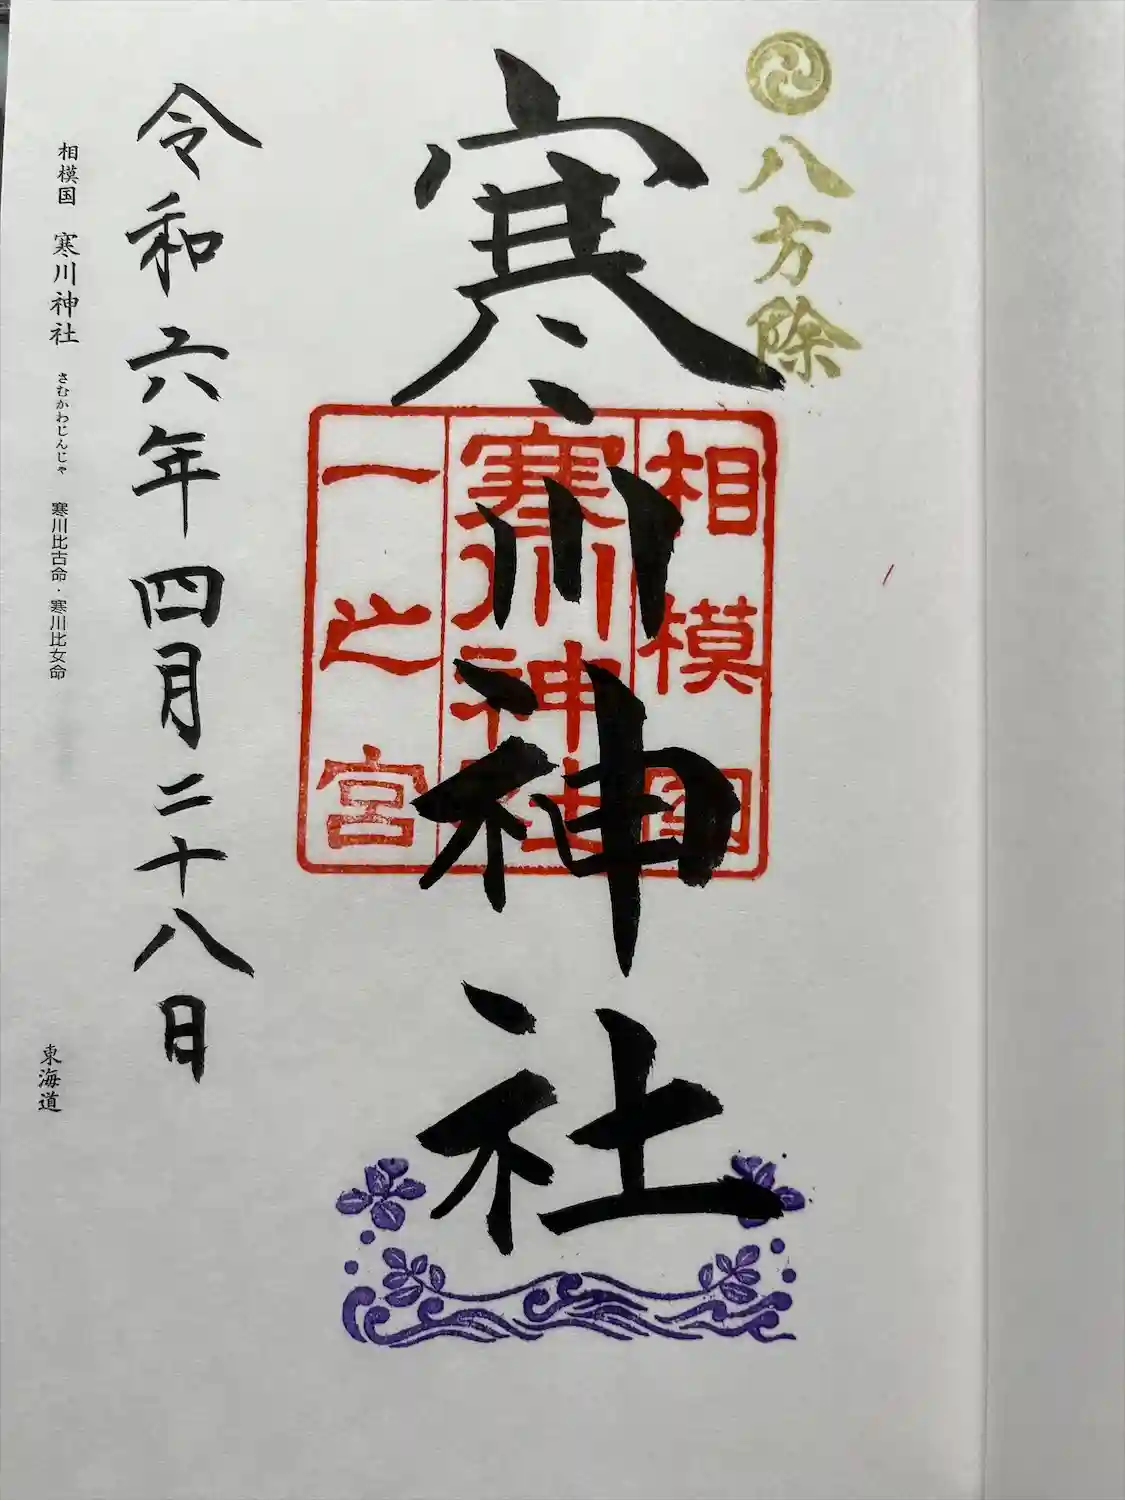 八方除
寒川神社
相模國
寒川神社
一之宮
令和六年四月二十八日
相模国 寒川神社 さむかわじんじゃ 寒川比古命・寒川比女命
東海道